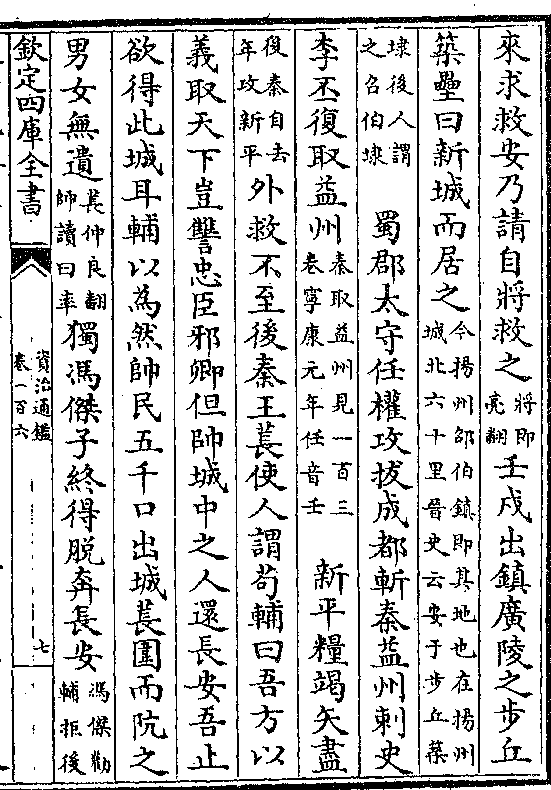 來求救安乃請自將救之將即亮翻壬戍出鎮廣陵之步丘
築壘曰新城而居之今揚州邵伯鎮即其地也在揚州城北六十里晉史云安于步丘築
埭後人謂之召伯埭 蜀郡太守任權攻拔成都斬秦益州刺史
李丕復取益州秦取益州見一百三卷寧康元年任音壬 新平糧竭矢盡
後秦自去年攻新平外救不至後秦王萇使人謂苟輔曰吾方以
義取天下豈讐忠臣邪卿但帥城中之人還長安吾止
欲得此城耳輔以為然帥民五千口出城萇圍而阬之
男女無遺萇仲良翻帥讀曰率獨馮傑子終得脫奔長安馮傑勸輔拒後
欽定四庫全書
資治通鑑
卷一百六
七